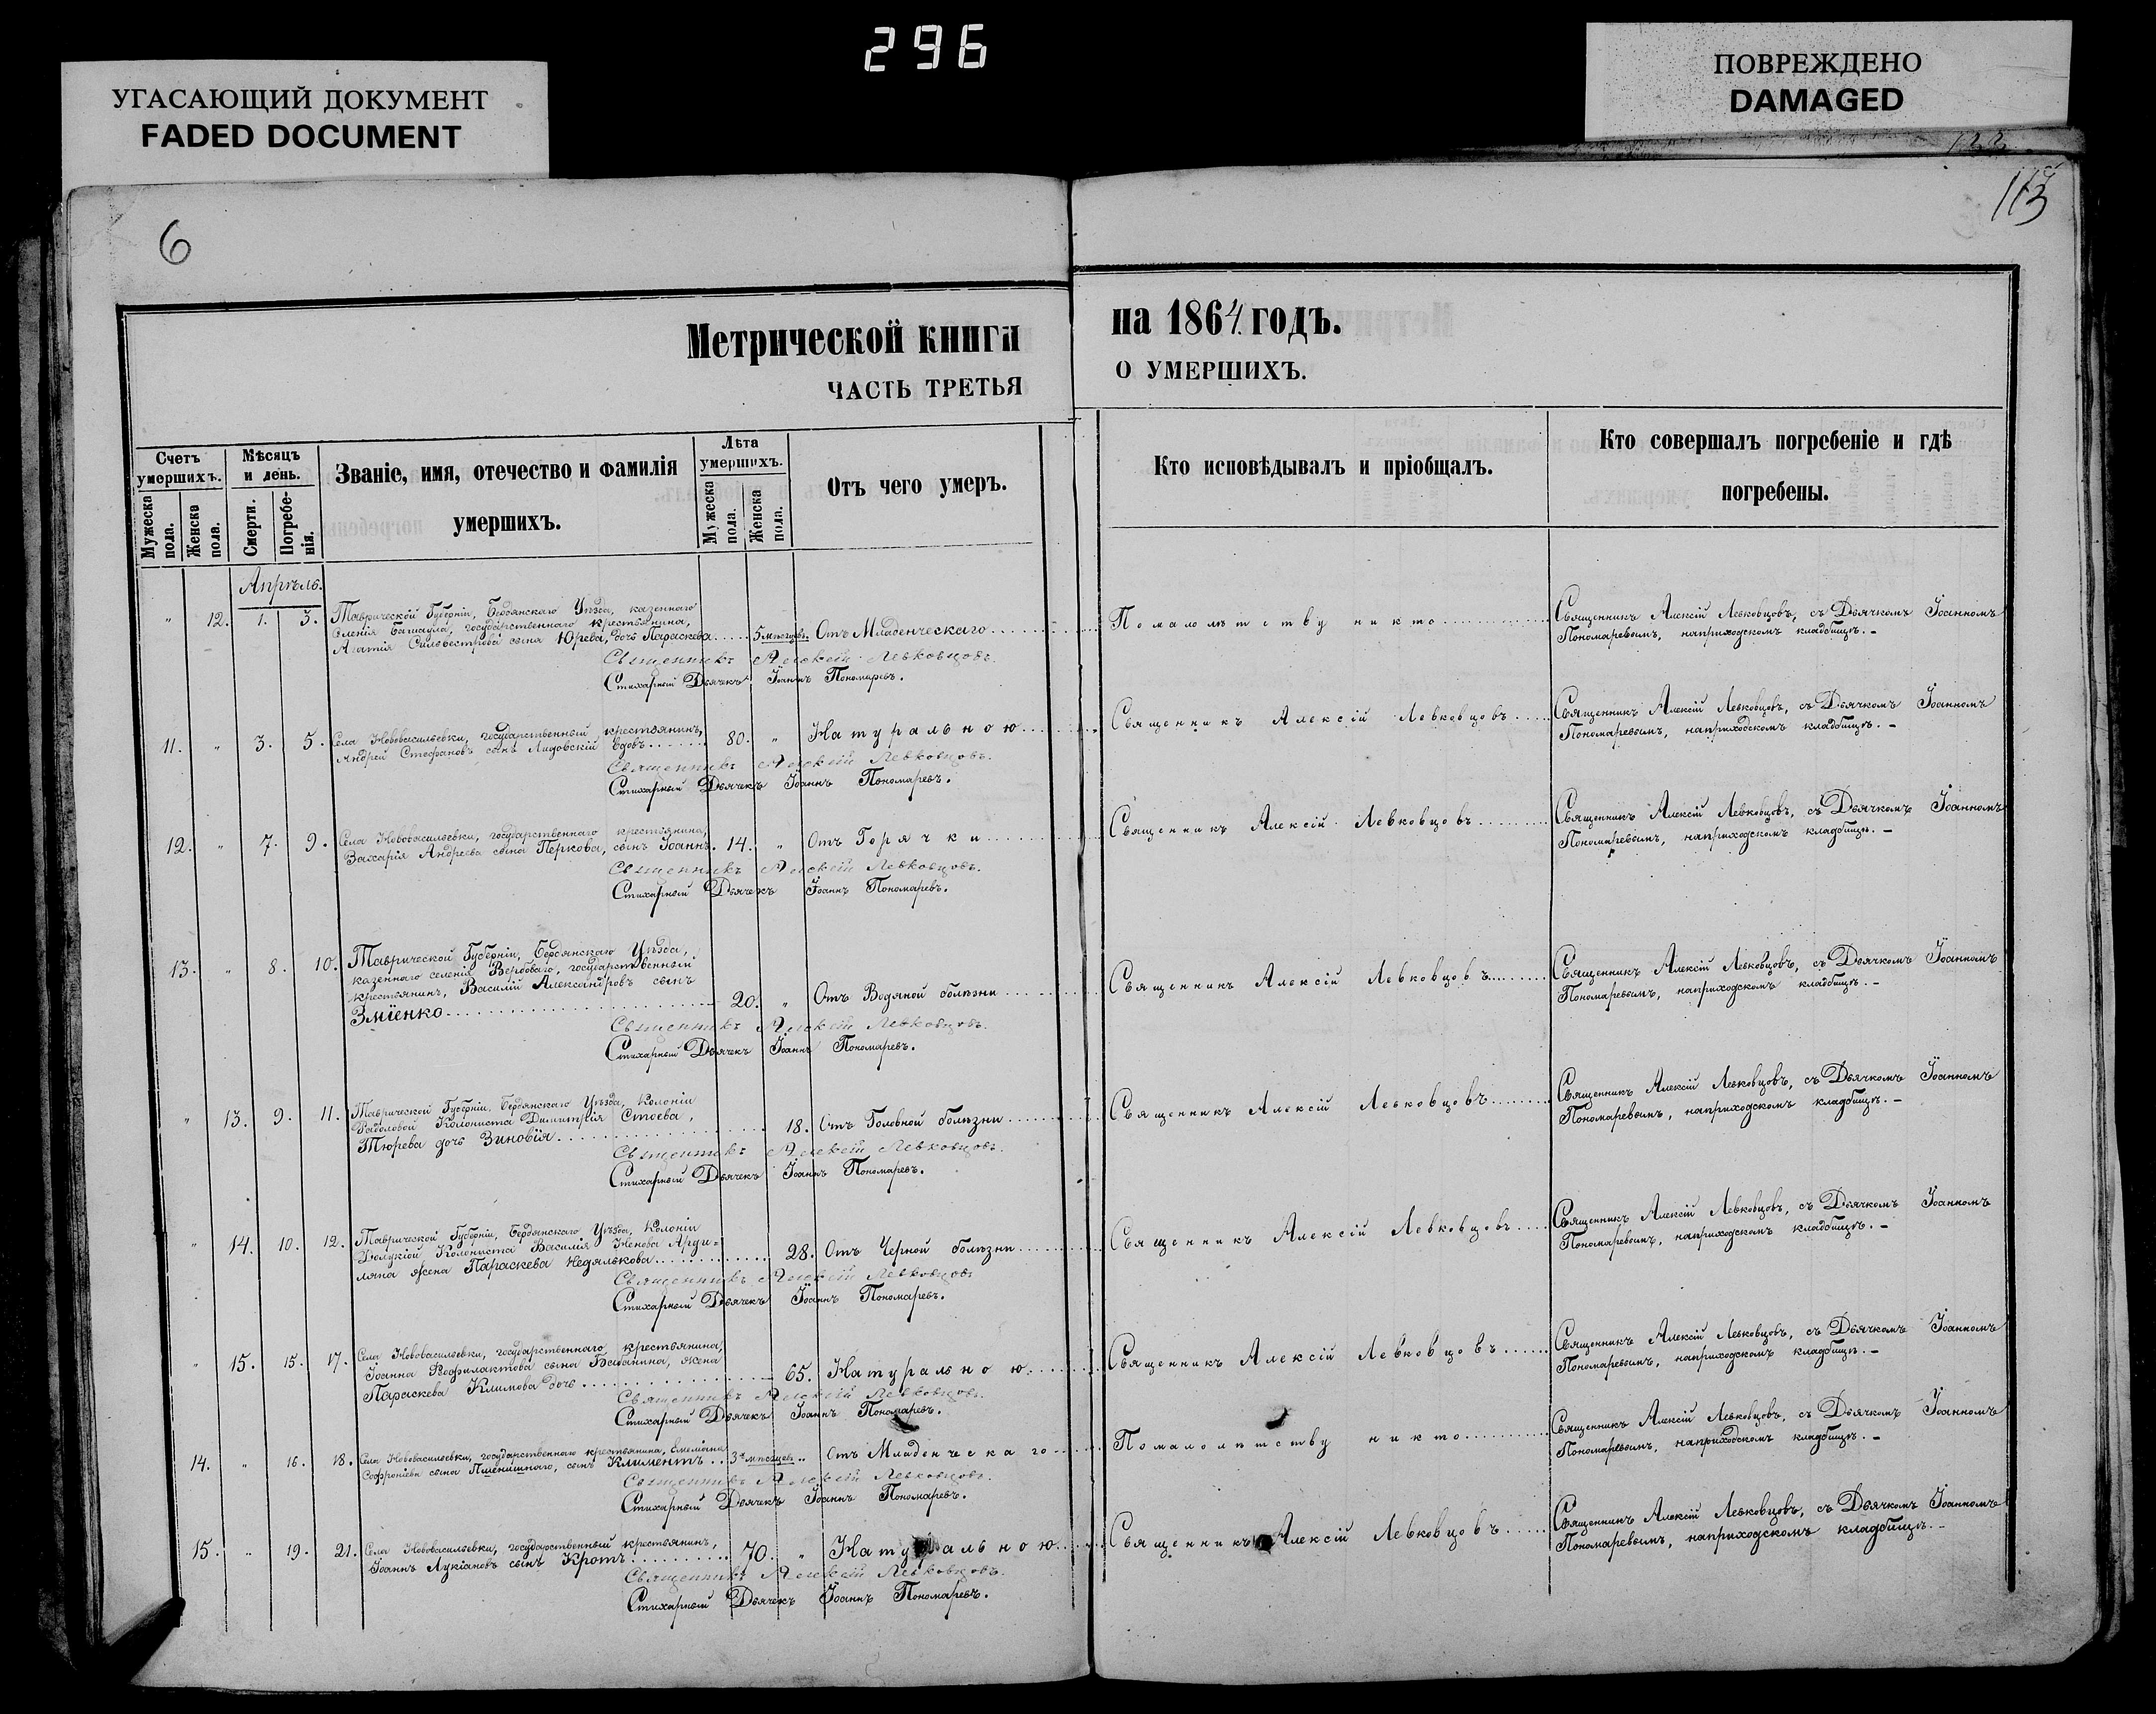 296
УГАСАЮЩИЙ ДОКУМЕНТ
FADED DOCUMENT
ПОВРЕЖДЕНО
DAMAGED
6
113
Метрической книги
ЧАСТЬ ТРЕТЬЯ
на 1864 годъ.
О УМЕРШИХЪ.
Счетъ умершихъ.
Мужеска пола.
Женска пола.
Мѣсяцъ и день.
Смерти.
Погребенія.
Званіе, имя, отечество и фамилія
умершихъ.
Лѣта умершихъ.
Мужеска пола.
Женска пола.
Отъ чего умеръ.
Кто исповѣдывалъ и пріобщалъ.
Кто совершалъ погребеніе и гдѣ
погребены.
Апрѣль.
" 12. 1. 3. Таврической Губерніи, Бердянскаго Уѣзда, казеннаго
селенія, государственнаго крестьянина,
Сильвестрова сына Юрева, дочь Параскева 5 мѣсяцевъ. Отъ Младенческаго
По малолѣтству никто
Священникъ Алексій Левковцовъ, съ Дьячкомъ Іоанномъ
Пономаревымъ, наприходскомъ кладбищѣ. –
Священникъ Алексій Левковцовъ.
Стихарный Дьячекъ Іоаннъ Пономаревъ.
11. " 3. 5. Села Нововасильевки, государственный крестьянинъ,
Андрей Стефановъ сынъ Лидовскій вдовъ 80. " Натуральною
Священникъ Алексій Левковцовъ
Священникъ Алексій Левковцовъ, съ Дьячкомъ Іоанномъ
Пономаревымъ, наприходскомъ кладбищѣ. –
Священникъ Алексій Левковцовъ.
Стихарный Дьячекъ Іоаннъ Пономаревъ.
12. " 7. 9. Села Нововасильевки, государственнаго крестьянина,
Захарія Андреева сына Перкова, сынъ Іоаннъ. 14. " Отъ Горячки
Священникъ Алексій Левковцовъ
Священникъ Алексій Левковцовъ, съ Дьячкомъ Іоанномъ
Пономаревымъ, наприходскомъ кладбищѣ. –
Священникъ Алексій Левковцовъ.
Стихарный Дьячекъ Іоаннъ Пономаревъ.
13. " 8. 10. Таврической Губерніи, Бердянскаго Уѣзда,
казеннаго селенія Вербоваго, государственный
крестьянинъ, Василій Александровъ сынъ
Зміенко 20. " Отъ Водяной болѣзни
Священникъ Алексій Левковцовъ
Священникъ Алексій Левковцовъ, съ Дьячкомъ Іоанномъ
Пономаревымъ, наприходскомъ кладбищѣ. –
Священникъ Алексій Левковцовъ.
Стихарный Дьячекъ Іоаннъ Пономаревъ.
" 13. 9. 11. Таврической Губерніи, Бердянскаго Уѣзда, Колоніи
Колониста Димитрія Стоева,
Тюрева дочь Зиновія 18. Отъ Головной болѣзни
Священникъ Алексій Левковцовъ
Священникъ Алексій Левковцовъ, съ Дьячкомъ Іоанномъ
Пономаревымъ, наприходскомъ кладбищѣ. –
Священникъ Алексій Левковцовъ.
Стихарный Дьячекъ Іоаннъ Пономаревъ.
" 14. 10. 12. Таврической Губерніи, Бердянскаго Уѣзда, Колоніи
Колониста Василія Ненова Арди=
ляпа жена Параскева Недялькова 28. Отъ Черной болѣзни
Священникъ Алексій Левковцовъ
Священникъ Алексій Левковцовъ, съ Дьячкомъ Іоанномъ
Пономаревымъ, наприходскомъ кладбищѣ. –
Священникъ Алексій Левковцовъ
Стихарный Дьячекъ Іоаннъ Пономаревъ.
" 15. 15. 17. Села Нововасильевки, государственнаго крестьянина,
Іоанна Феофилактова сына Бабанина, жена
Параскева Климова дочь 65. Натуральною
Священникъ Алексій Левковцовъ
Священникъ Алексій Левковцовъ, съ Дьячкомъ Іоанномъ
Пономаревымъ, наприходскомъ кладбищѣ. –
Священникъ Алексій Левковцовъ.
Стихарный Дьячекъ Іоаннъ Пономаревъ.
14. " 16. 18. Села Нововасильевки, государственнаго крестьянина, Емеліана
Софроніева сына Пшенишнаго, сынъ Климентъ 3хъ мѣсяцевъ " Отъ Младенческаго
По малолѣтству никто
Священникъ Алексій Левковцовъ, съ Дьячкомъ Іоанномъ
Пономаревымъ, наприходскомъ кладбищѣ. –
Священникъ Алексій Левковцовъ.
Стихарный Дьячекъ Іоаннъ Пономаревъ.
15. " 19. 21. Села Нововасильевки, государственный крестьянинъ,
Іоаннъ Лукіановъ сынъ Кротъ 70. " Натуральною
Священникъ Алексій Левковцовъ
Священникъ Алексій Левковцовъ, съ Дьячкомъ Іоанномъ
Пономаревымъ, наприходскомъ кладбищѣ. –
Священникъ Алексій Левковцовъ.
Стихарный Дьячекъ Іоаннъ Пономаревъ.